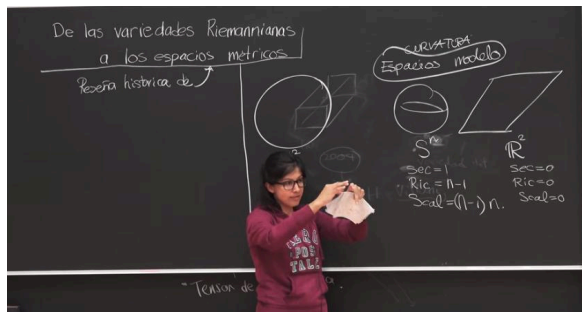 De las variedades Riemannianas
a los espacios métricos
Reseña histórica de
CURVATURA
Espacios modelo
2
S^n
sec=1
Ric=n-1
Scal=(n-1)n.
R^2
sec=0
Ric=0
Scal=0
AERO
POS
TALE
"Tensor de